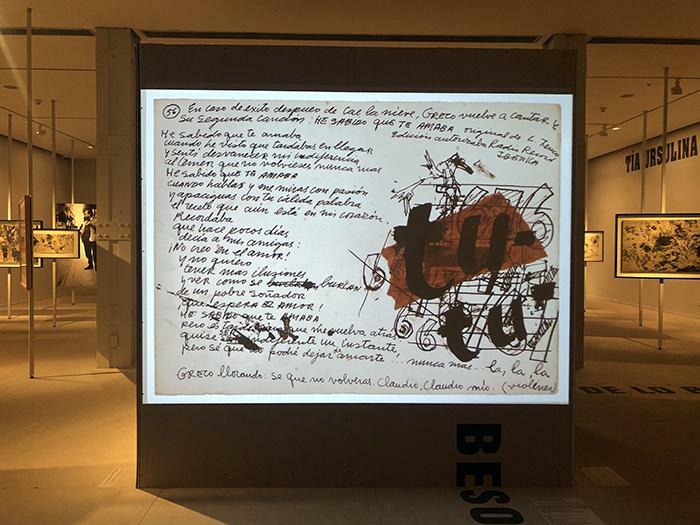 56 En caso de exito despues de Cae la nieve, GRECO vuelve a cantar
Su segunda cancion: HE SABIDO QUE TE AMABA original de L. Tenco
Edición autorizada Radio Record
He sabido que te amaba
cuando he visto que tardabas en llegar
y sentí desvanecer mi indiferencia
al temer que no volvieses nunca mas
HE SABIDO QUE TE AMABA
cuando hablas y me miras con pasión
y apaciguas con tu cálida palabra
el recelo que aún está en mi corazón.
Recordaba
que hace pocos días
decía a mis amigas:
¡No creo en el amor!
y no quiero
tener mas ilusiones
y ver como se burlan
de un pobre soñador
que espera el AMOR!
HE SABIDO QUE TE AMABA
pero es que me vuelva atrás
quise ser indiferente un instante,
pero sé que no podré dejar de amarte ... nunca mas... la, la, la
GRECO llorando: se que no volveras. Claudio, Claudio mio. (violines)
tu-
tu-
TÍA URSULINA
DE LO
BESO